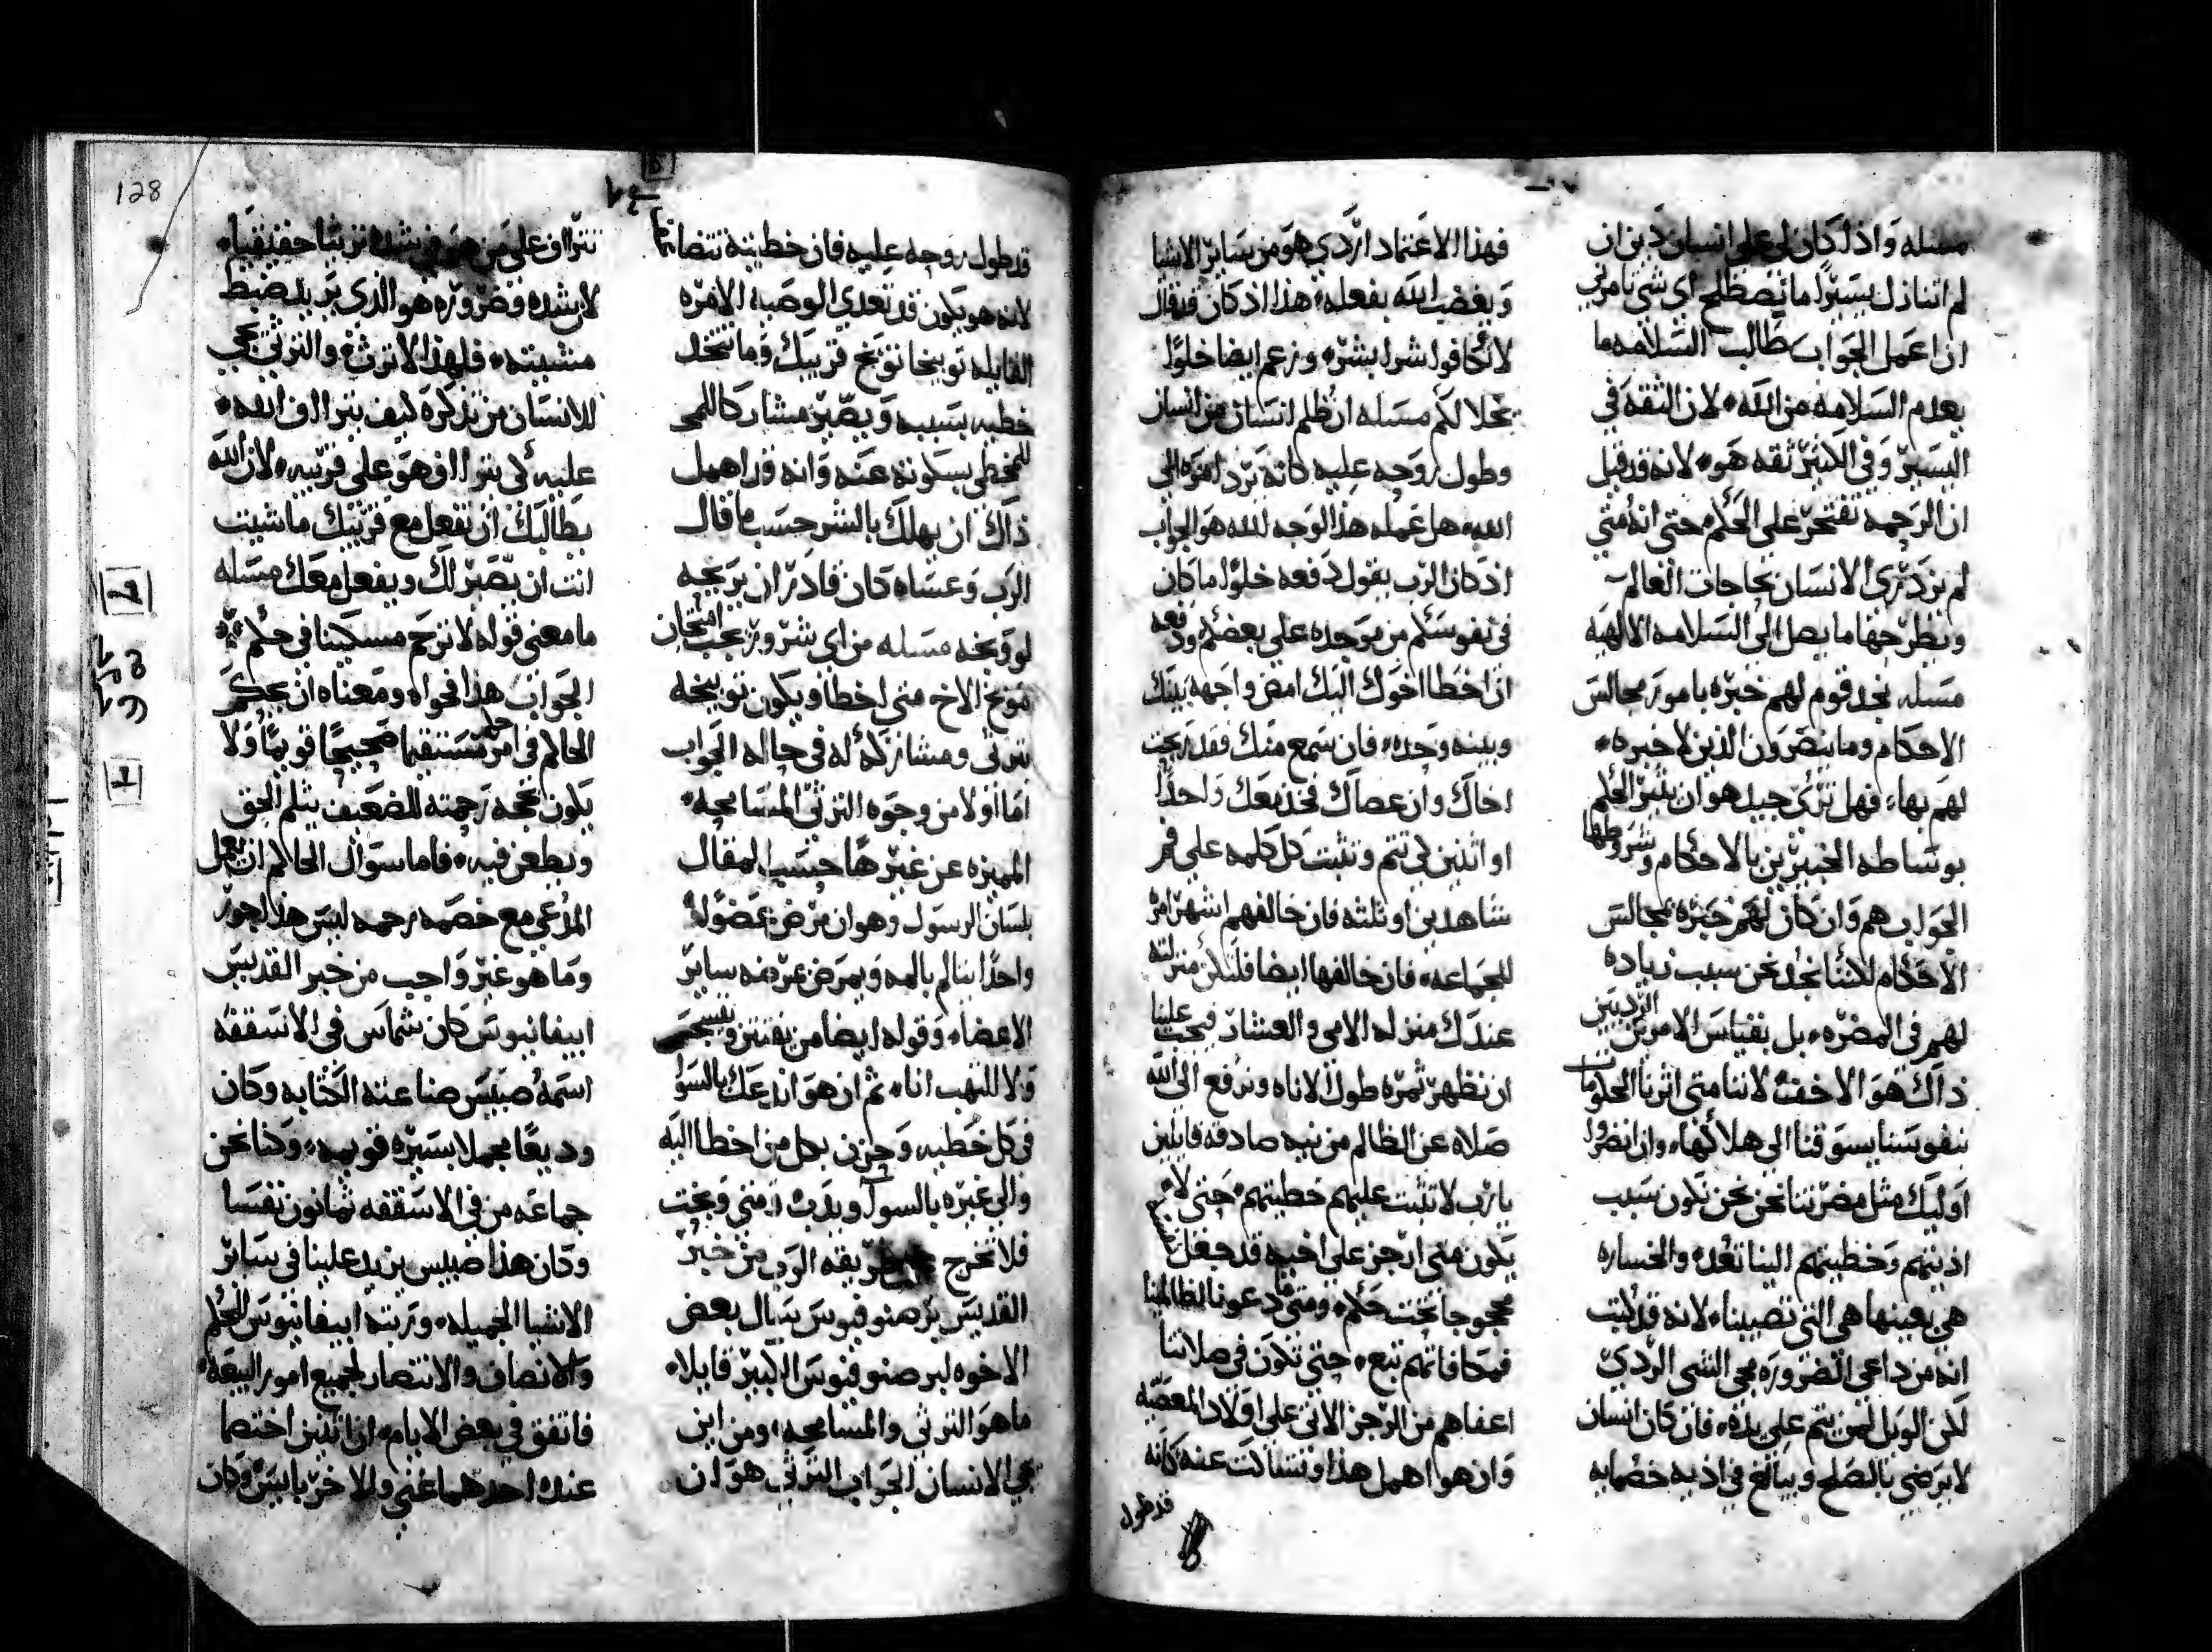 مسله واذا كان لي على انسان دين ان
لم اتنازل يسيرا ما نصطلح اي شي تامرني
ان اعمل الجواب طالب السلامه ما
يعدم السلامه من الله لان الثقه في
اليسير وفي الكثير ثقه هو لانه قد قيل
ان الرحمه تفتخر على الحكم حتى انه متي
لم يزدري الانسان بحاجات العالم
وينظر حقا ما يصل الى السلامه الالهيه
مسله نجد قوم لهم خبره بامور مجالس
الاحكام وما ينضرون الذين لا خبره
لهم بها فهل تري جيد هو ان يثير الحكم
بوساطه الخبيرين بالاحكام وشروطها
الجواب هم وان كان لهم خبره بمجالس
الاحكام لكننا نجد نحن سبب زياده
لهم في المضره بل بقياس الامرين الرديين
ذاك هو الاخف لاننا متى اثرنا الحكومات
نفوسنا يسوقنا الى هلاكها وان انضروا
اوليك مثل مضرتنا نحن نحن نكون سبب
اذيتهم وخطيتهم الينا تعد والخساره
هي بعينها هي التي تصيبنا لانه قد كتب
انه من داعي الضروره مجي الشي الردي
لكن الويل لمن يتم على يده فان كان انسان
لا يرضي بالصلح ويبالغ في اذيه خصمايه
فهذا الاعتماد اردي هو من ساير الاشيا
ويغضب الله بفعله هذا اذ كان قد قال
لا تكافوا شرا بشر وزعم ايضا خلوا
يخلا لكم مسله ان ظلم انسان من انسان
وطول روحه عليه كانه يرد امره الى
الله هل عمله هذا لوجه الله هو الجواب
اذ كان الرب يقول دفعه خلوا ما كان
في نفوسكم من موجده على بعضكم ودفعه
ان اخطا اخوك اليك امض واجهه بينك
وبينه وحده فان سمع منك فقد ربحت
اخاك وان عصاك فخذ معك واحدا
او اثنين لكي تتم وتثبت كل كلمه على فم
شاهدين او ثلثه فان خالفهم اشهر امره
للجماعه فان خالفها ايضا فلتكن منزلته
عندك منزله الامي والعشار فيجب علينا
ان نظهر ثمره طول الاناه ونرفع الى الله
صلاه عن الظالم من نيه صادقه قايلين
يا رب لا تثبت عليهم خطيتهم حتى لا
يكون متى ارجز على اخيه قد جعل نفسه
محجوجا تحت حكم ومتى ما دعونا لظالمينا
فمكافاتهم تتبع حتى تكون في صلاتنا
اعفاهم من الرجز الاتي على اولاد المعصيه
وان هو اهمل هذا وتساكت عنه كانه
قد طول
قد طول روحه عليه فان خطيته تتضاعف
لانه هو يكون قد تعدي الوصيه الامره
القايله توبيخا توبخ قريبك وما تتخد
خطيه بسببه ويصير مشاركا للمخ
للمخطي بسكوته عنه وانه قد اهمل
ذاك ان يهلك بالشر حسب ما قال
الرب وعساه كان قادر ان يربحه
لو وبخه مسله من اي شر ويز يجب امتحان
موبخ الاخ متى اخطا ويكون توبيخه
بترثي ومشاركه له في حاله الجواب
اما اولا من وجوه الترثي المسامحه
المميزه عن غيرها حسب المقال
بلسان الرسول وهو ان مرض عضوا
واحدا بنا لم بالمه ويمرض عرضه ساير
الاعضاء وقوله ايضا من يفتتن ويسجس
ولا التهب انا ثم ان هو اندعك بالسوا
في كل خطيه وحزن بكل من اخطا اليه
والى غيره بالسوا وبدب زمني وبخت
فلا تخرج طريقه الرب من خبر
القديس برصنوفيوس سال بعض
الاخوه لبرصنوفيوس الكبير قايلا
ما هو الترثي والمسامحه ومن اين
هي الانسان الجواب الترثي هو ان
تتراف على من هو في شده ترثيا حقيقيا
لان شده وضروره هو الذي يريد ضبط
مشيته فلهذا لا ترث والترثي يجي
للانسان من تذكره كيف يتراف الله
عليه لكي يتراف هو على قريبه لان الله
يطالبك ان تفعل مع قريبك ما شيت
انت ان يصير لك ويفعل معك مسله
ما معنى قوله لا ترحم مسكينا في حكم
الجواب هذا فحواه ومعناه ان يحكم
الحاكم في امر حكما مستقيما صحيحا قويما ولا
يكون بحجه رحمته للضعيف يثلم الحق
ويطعن فيه فاما سوال الحاكم ان يعمل
المدعي مع خصمه رحمه ليس هذا جور
وما هو غير واجب من خبر القديس
ابيفانيوس كان شماس في الاسقفه
اسمه صبيس صناعته الكتابه وكان
وديعا مجملا بسيره قويمه وكنا نحن
جماعه من في الاسقفه ثمانون نفسا
وكان هذا صبيس يزيد علينا في ساير
الاشيا الجميله ورتبه ابيفانيوس للحكم
والانصاف والانتصار لجميع امور البيعه
فاتفق في بعض الايام ان اثنين اختصما
عنده احدهما غني والاخر بايس وكان
128